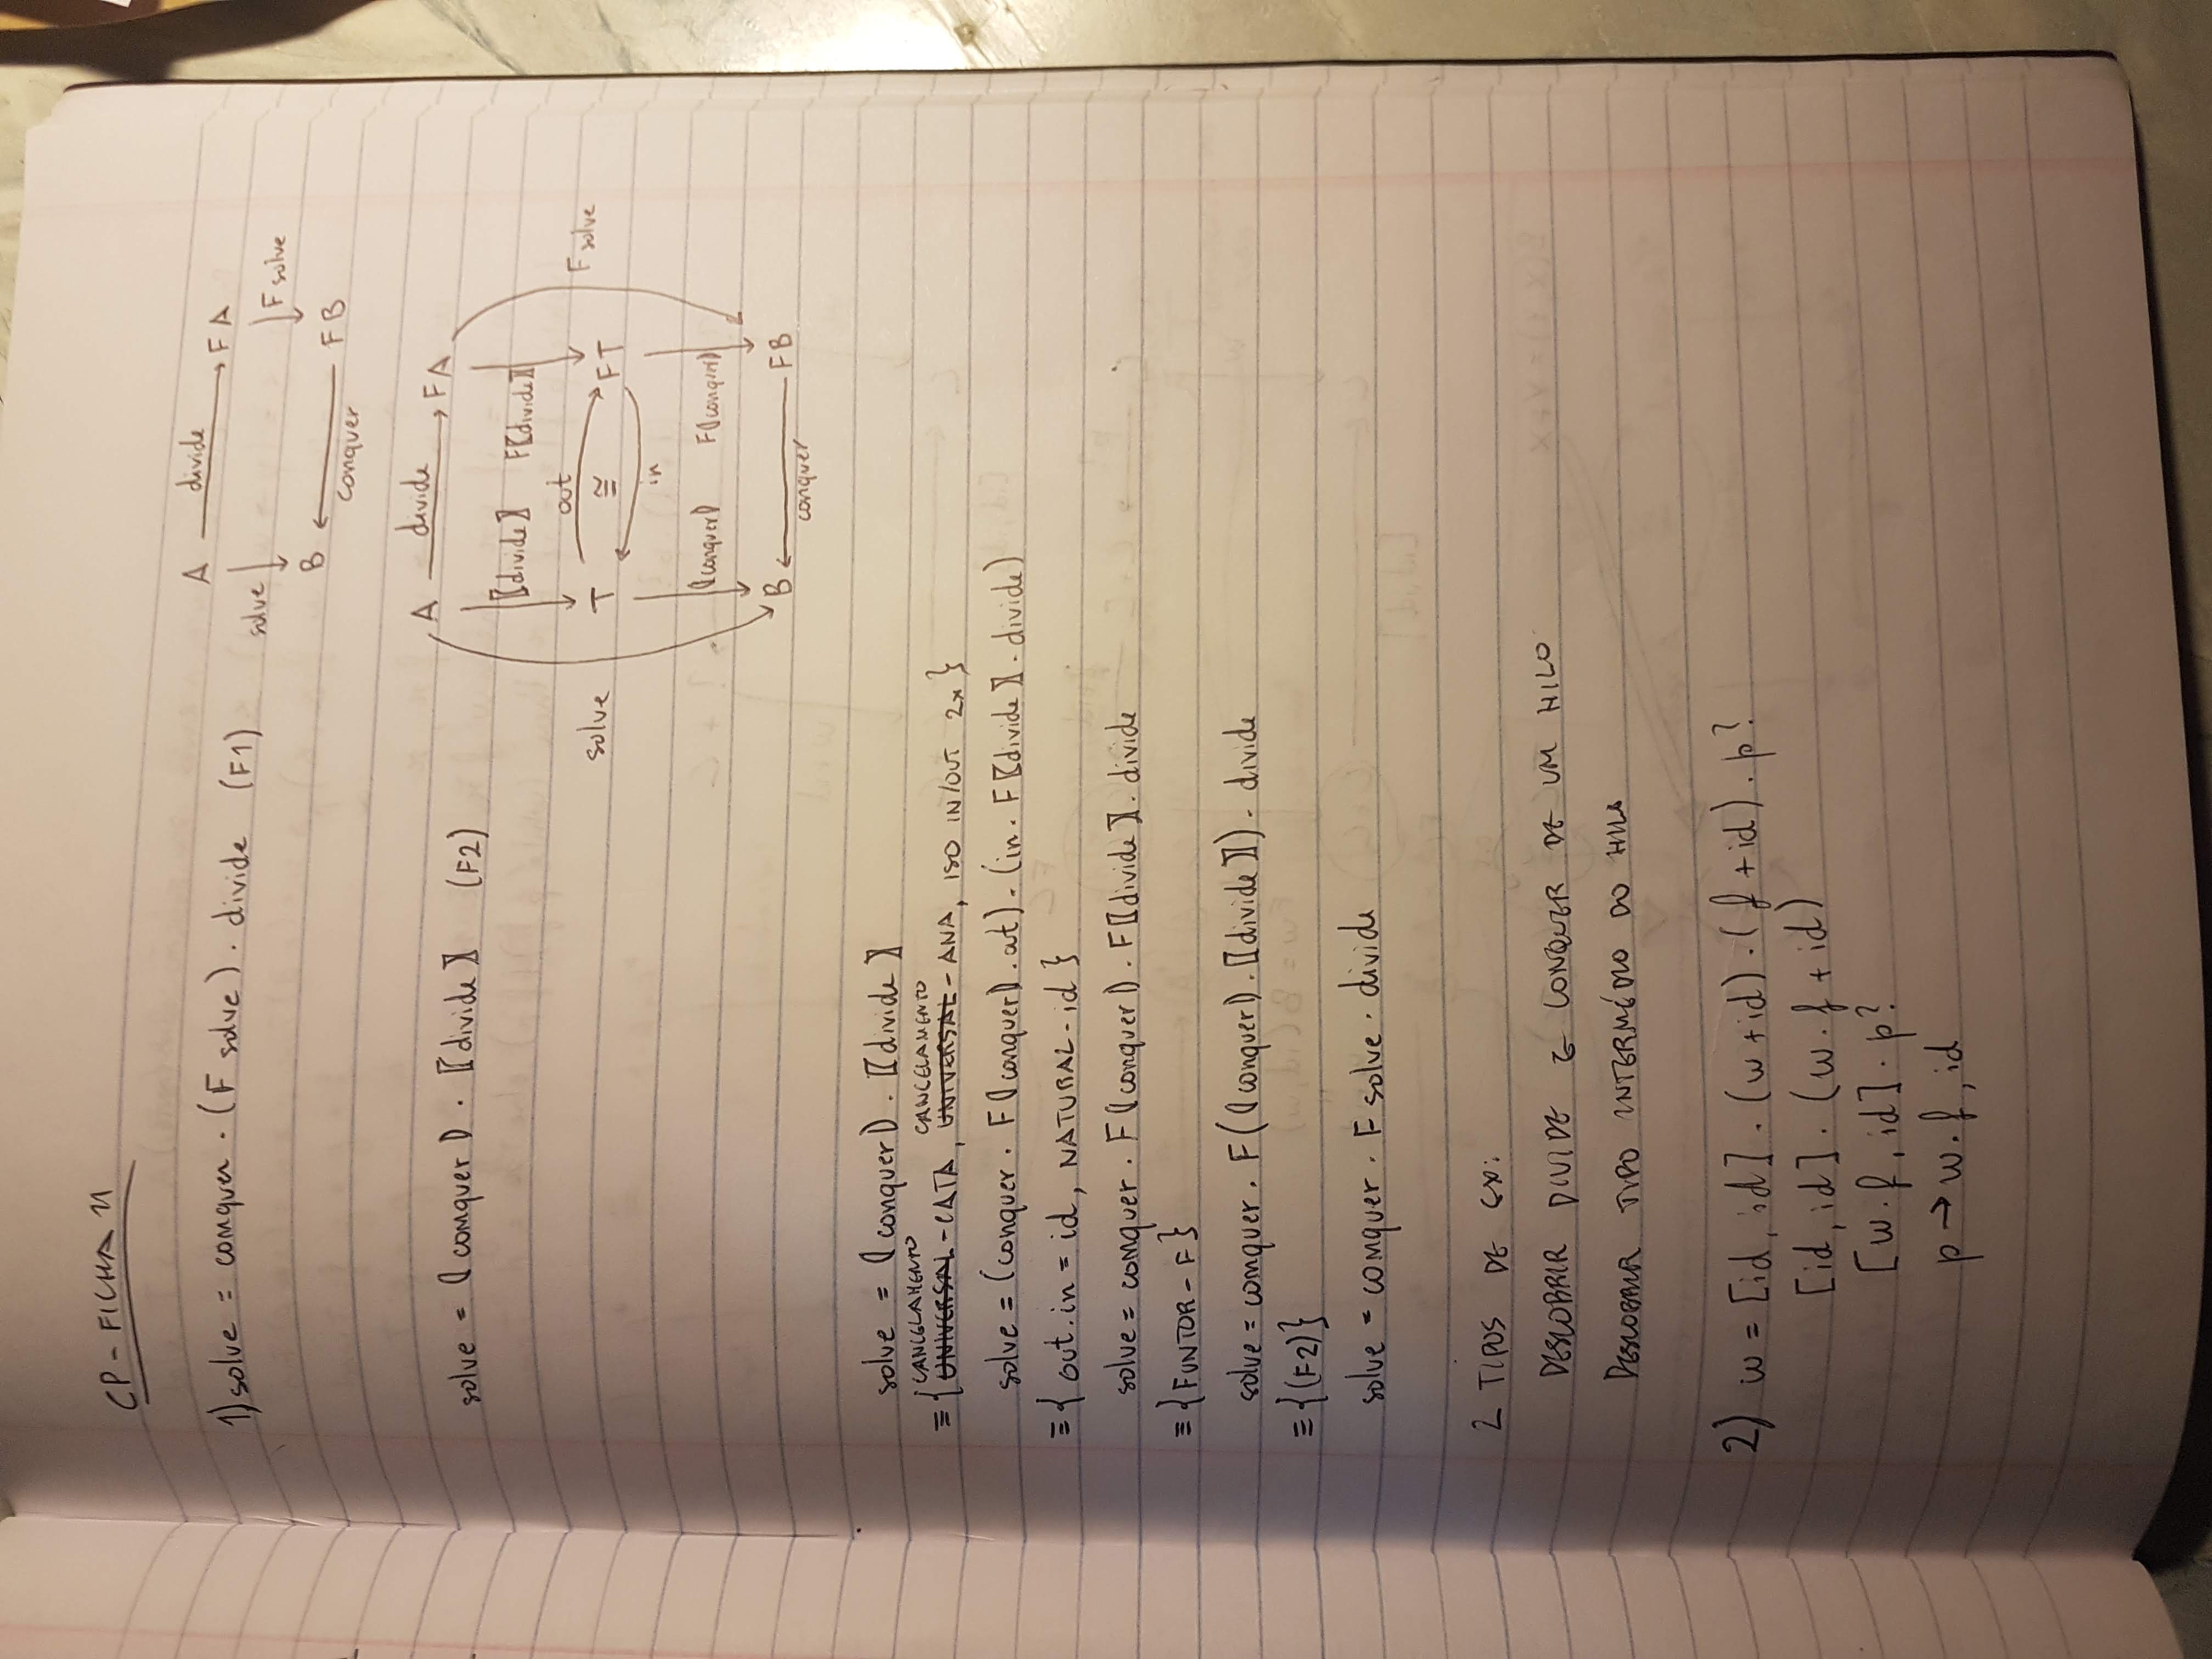 CP - FICHA 11
1) solve = conquer . (F solve) . divide (F1)
A divide F A
solve F solve
B F B
conquer
solve = ⦇conquer⦈ . 〖divide〗 (F2)
A divide FA
〖divide〗 F〖divide〗
out
solve T ≅ FT F solve
in
⦇conquer⦈ F⦇conquer⦈
B FB
conquer
solve = ⦇conquer⦈ . 〖divide〗
CANCELAMENTO CANCELAMENTO
≡ { UNIVERSAL-CATA, UNIVERSAL-ANA, ISO IN/OUT 2x }
solve = (conquer . F⦇conquer⦈ . out) . (in . F〖divide〗 . divide)
≡ { out.in = id, NATURAL-id }
solve = conquer . F⦇conquer⦈ . F〖divide〗 . divide
≡ {FUNTOR-F}
solve = conquer . F(⦇conquer⦈ . 〖divide〗) . divide
≡ {(F2)}
solve = conquer . F solve . divide
2 TIPOS DE EX:
DESCOBRIR DIVIDE E CONQUER DE UM HILO
DESCOBRIR TIPO INTERMÉDIO DO HILO
2) w = [id, id] . (w + id) . (f + id) . p?
[id, id] . (w . f + id)
[w . f, id] . p?
p → w . f, id